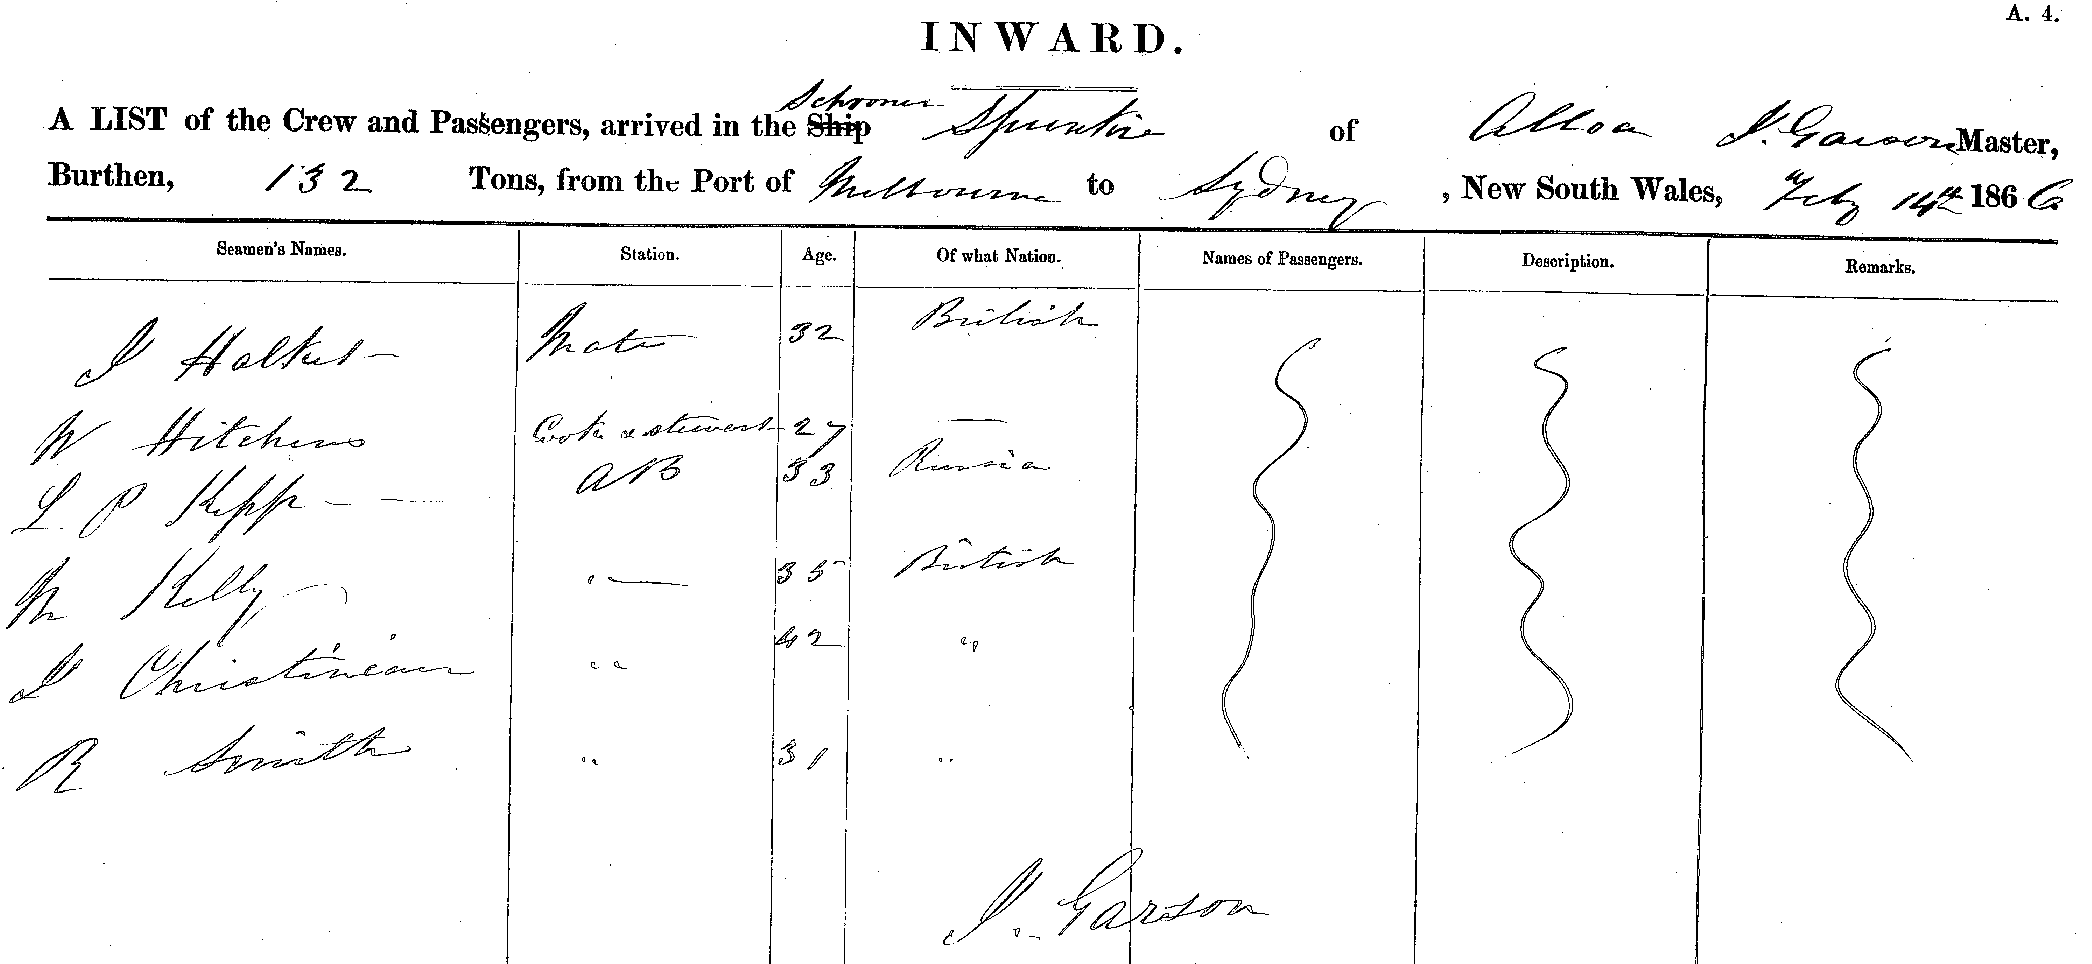 A. 4.
INWARD.
Schooner
A LIST of the Crew and Passengers, arrived in the Ship Spunkie of Alloa J. Garson Master,
Burthen, 132 Tons, from the Port of Melbourne to Sydney, New South Wales, Feby 14th 1866
Seamen's Names. Station. Age. Of what Nation. Names of Passengers. Description. Remarks.
J Halket Mate 32 British
W Hitchens Cook & steward 27 —
L. P Kepp A B 33 Russia
M Kelly " 35 British
J 42 "
R Smith " 31 "
J. Garson